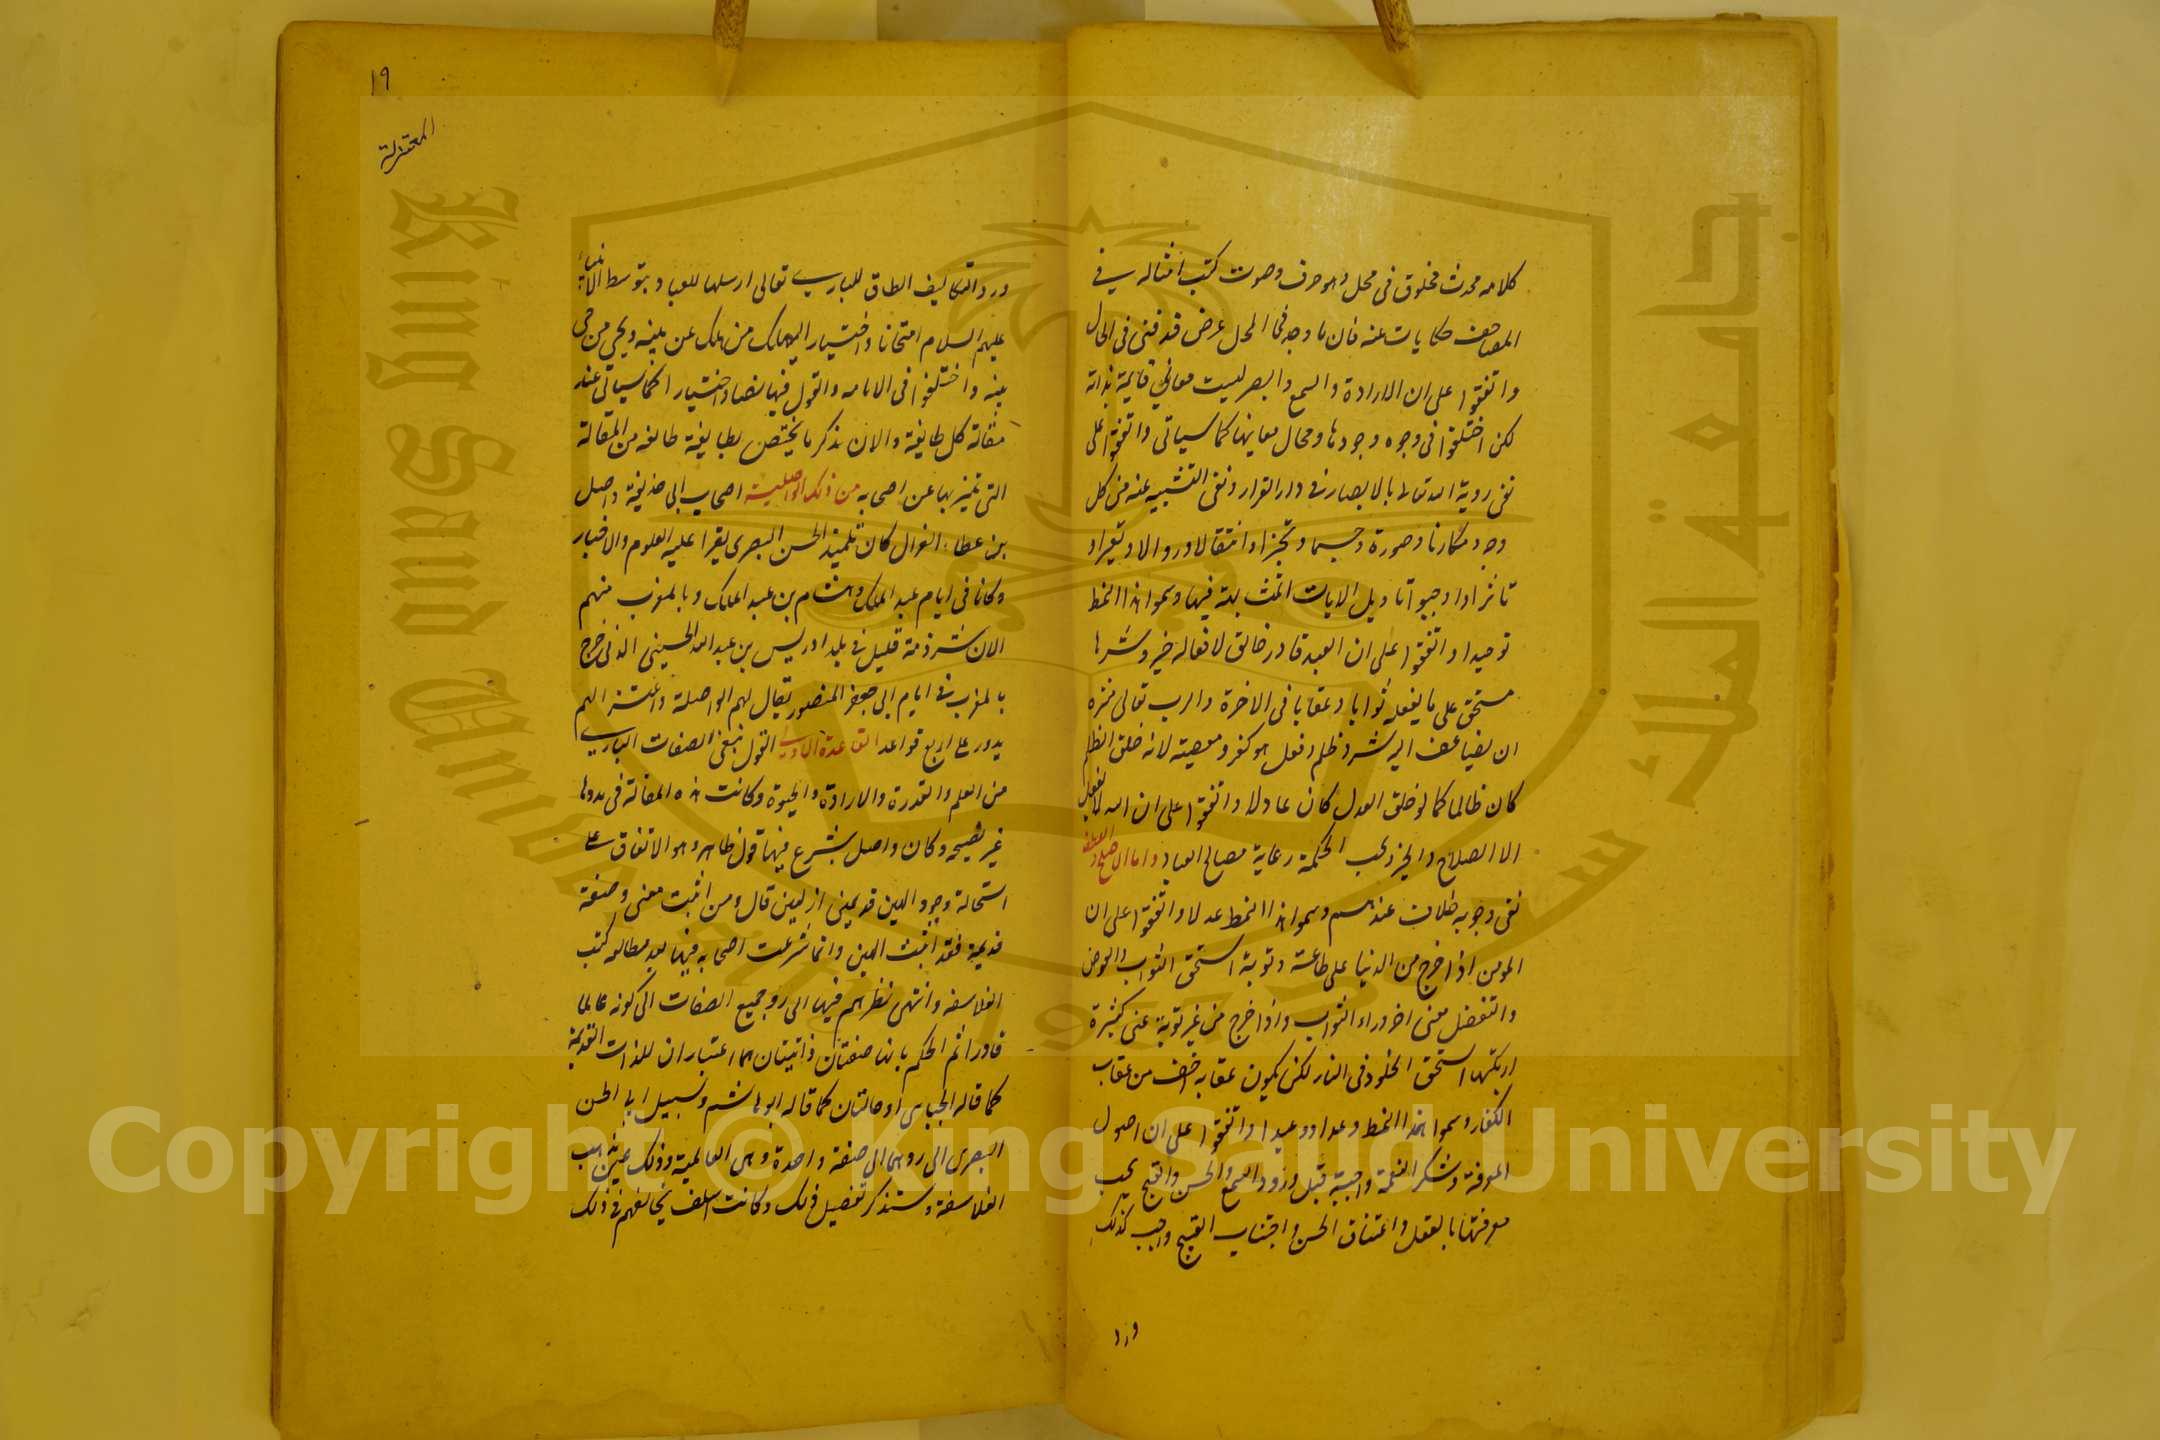 كلامه محدث مخلوق فى محل وهو حرف وصوت كتب امثاله في
المصاحف حكايات عنه فان ما وجد فى المحل عرض قد فنى فى الحال
واتفقوا على ان الارادة والسمع والبصر ليست معاني قائمة بذاته
لكن اختلفوا فى وجوه وجودها ومحال معانيها كما سياتى واتفقوا على
نفى روية الله تعالى بالابصار في دار القرار ونفى التشبيه عنه من كل
وجه مكانا وصورة وجسما وتحيزا وانتقالا وزوالا وتغيرا و
تاثرا واوجبوا تاويل الايات المتشابهة فيها وسموا هذا النمط
توحيدا واتفقوا على ان العبد قادر خالق لافعاله خير وشرها
مستحق على ما يفعله ثوابا وعقابا فى الاخرة والرب تعالى منزه
ان يضاف اليه شر وظلم وفعل هو كفر ومعصيته لانه خلق الظلم
كان ظالما كما لو خلق العدل كان عادلا واتفقوا على ان الله لا يفعل
الا الصلاح والخير ويجب الحكمة رعاية مصالح العباد واما الاصلح واللطف
نفى وجوبه خلاف عندهم وسموا هذا النمط عدلا واتفقوا على ان
المومن اذا خرج من الدنيا على طاعته وتوبة استحق الثواب والعوض
والتفضل معنى اخر وراء الثواب واذا خرج من غير توبة عنى كبيرة
ارتكبها استحق الخلود فى النار لكن يكون عقابه اخف من عقاب
الكفار وسموا هذا النمط وعدا ووعيدا واتفقوا على ان اصول
المعرفة وشكر النعمة واجبة قبل ورود السمع والحسن والقبح يجب
معرفتها بالعقل واعتناق الحسن واجتناب القبيح واجب كذلك
ورد
١٩
المعتزلة
ورد التكاليف الطاف للباري تعالى ارسلها للعباد بتوسط الانبياء
عليهم السلام امتحانا واختيارا ليهلك من هلك عن بينه ويحى من حى
بينه واختلفوا فى الامامه والقول فيها نصا واختيارا كما سياتى عند
مقالة كل طايفة والان نذكر ما يختص بطايفة طايفه من المقالة
التى تميز بها عن اصحابه من ذلك الواصلية اصحاب ابى حذيفة واصل
بن عطاء الغزال كان تلميذ الحسن البصرى يقرا عليه العلوم والاخبار
وكانا فى ايام عبد الملك وهشام بن عبد الملك وبالمغرب منهم
الان شرذمة قليل في بلد ادريس بن عبد الله الحسينى الذى خرج
بالمغرب في ايام ابى جعفر المنصور يقال لهم الواصلة واعتزالهم
يدور على اربع قواعد القاعدة الاولى القول بنفى الصفات الباري
من العلم والقدرة والارادة والحيوة وكانت هذه المقالة فى بدوها
غير نضيحه وكان واصل يشرع فيها قول ظاهر وهو الاتفاق على
استحالة وجود الهين قديمين ازليين قال ومن اثبت معنى وصفة
قديمة فقد اثبت الهين وانما شرعت اصحابه فيها بعد مطالعه كتب
الفلاسفه وانتهى نظرهم فيها الى رد جميع الصفات الى كونه عالما
قادرا ثم الحكم بانها صفتان ذاتيتان هما اعتباران للذات القديمة
كما قاله الجباى او حالتان كما قاله ابو هاشم وسبيل ابى الحسن
البصرى الى ردهما الى صفة واحدة وهى العالمية وذلك عين مذهب
الفلاسفة وسنذكر تفصيل ذلك وكانت السلف يخالفهم في ذلك
جامعة الملك سعود
King Saud University
1957
Copyright © King Saud University